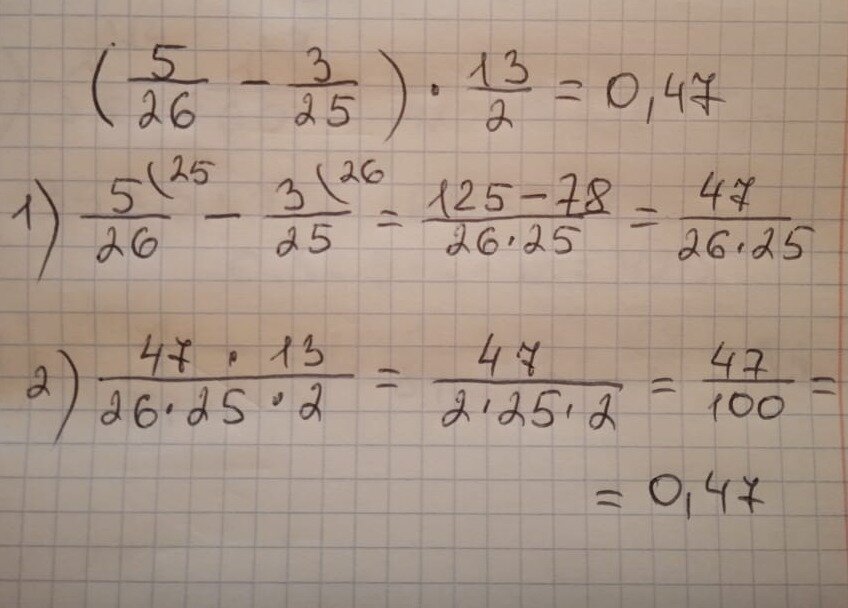 (5/26 - 3/25) · 13/2 = 0,47
1) 5\25/26 - 3\26/25 = 125-78/26·25 = 47/26·25
2) 47·13/26·25·2 = 47/2·25·2 = 47/100 =
= 0,47